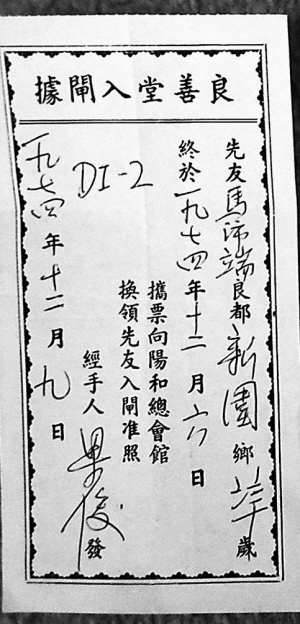 良善堂入閘據
先友馬沛端良都新園鄉 歲
終於一九七四年十二月六日
攜票向陽和總會館
換領先友入閘准照
DI-2
經手人 俊 發
一九七四年十二月九日